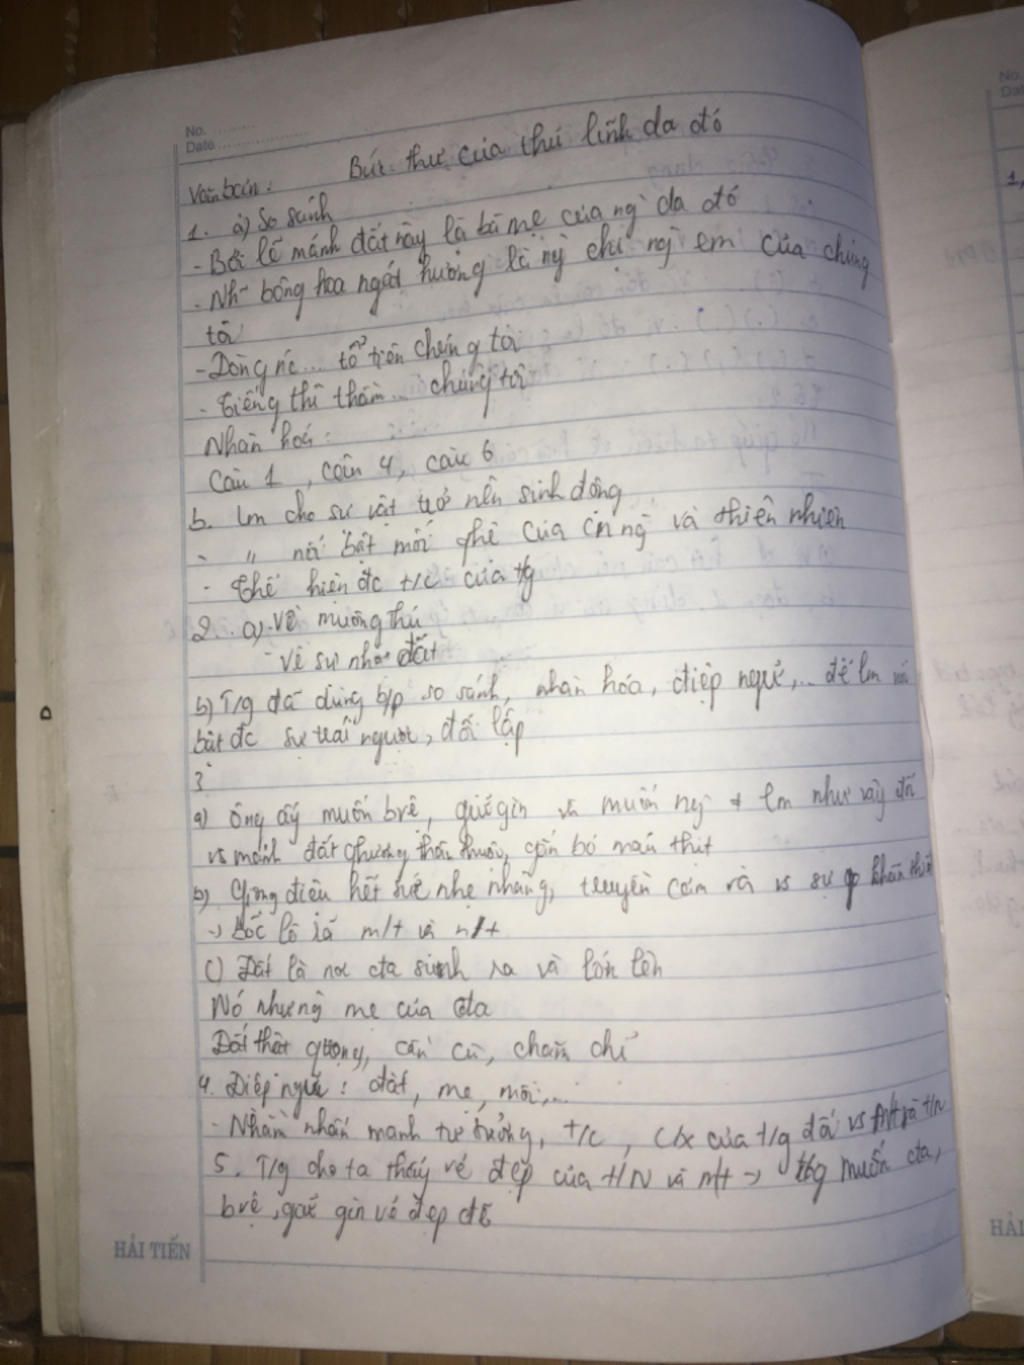 No. ..........
Date ..................
Văn bản: Bức thư của thủ lĩnh da đỏ
1. a) So sánh
- Bởi lẽ mảnh đất này là bà mẹ của ng` da đỏ
- Nh~ bông hoa ngát hương là ng` chị ng` em của chúng
tôi
- Dòng nc ... tổ tiên chúng tôi
- Tiếng thì thầm ... chúng tôi
Nhân hoá:
Câu 1, câu 4, câu 6
b. lm cho sự vật trở nên sinh động
- " nổi bật mối qhệ của cn ng` và thiên nhiên
- Thể hiện đc t/c của t/g
2. a) - Về muông thú
- Về sự đất
b) T/g đã dùng b/p so sánh, nhân hóa, điệp ngữ,... để lm nổi
bật đc sự trái ngược, đối lập
3
a) ông ấy muốn bvệ, giữ gìn và muốn ng` lm như vậy đối
vs mảnh đất qhương thân thuộc, gắn bó máu thịt
b) Giọng điệu hết sức nhẹ nhàng, truyền cảm và vs sự khẩn thiết
-> Bốc lộ là m/t và
c) Đất là nơi cta sinh ra và lớn lên
Nó như ng` mẹ của cta
Đất thật qtrọng, cần cù, chăm chỉ
4. Điệp ngữ: đất, mẹ, mỗi,...
- Nhằm nhấn mạnh tư tưởng, t/c, c/x của t/g đối vs và t/N
5. T/g cho ta thấy vẻ đẹp của t/N và m/t -> t/g muốn cta,
bvệ, giữ gìn vẻ đẹp đó
HẢI TIẾN